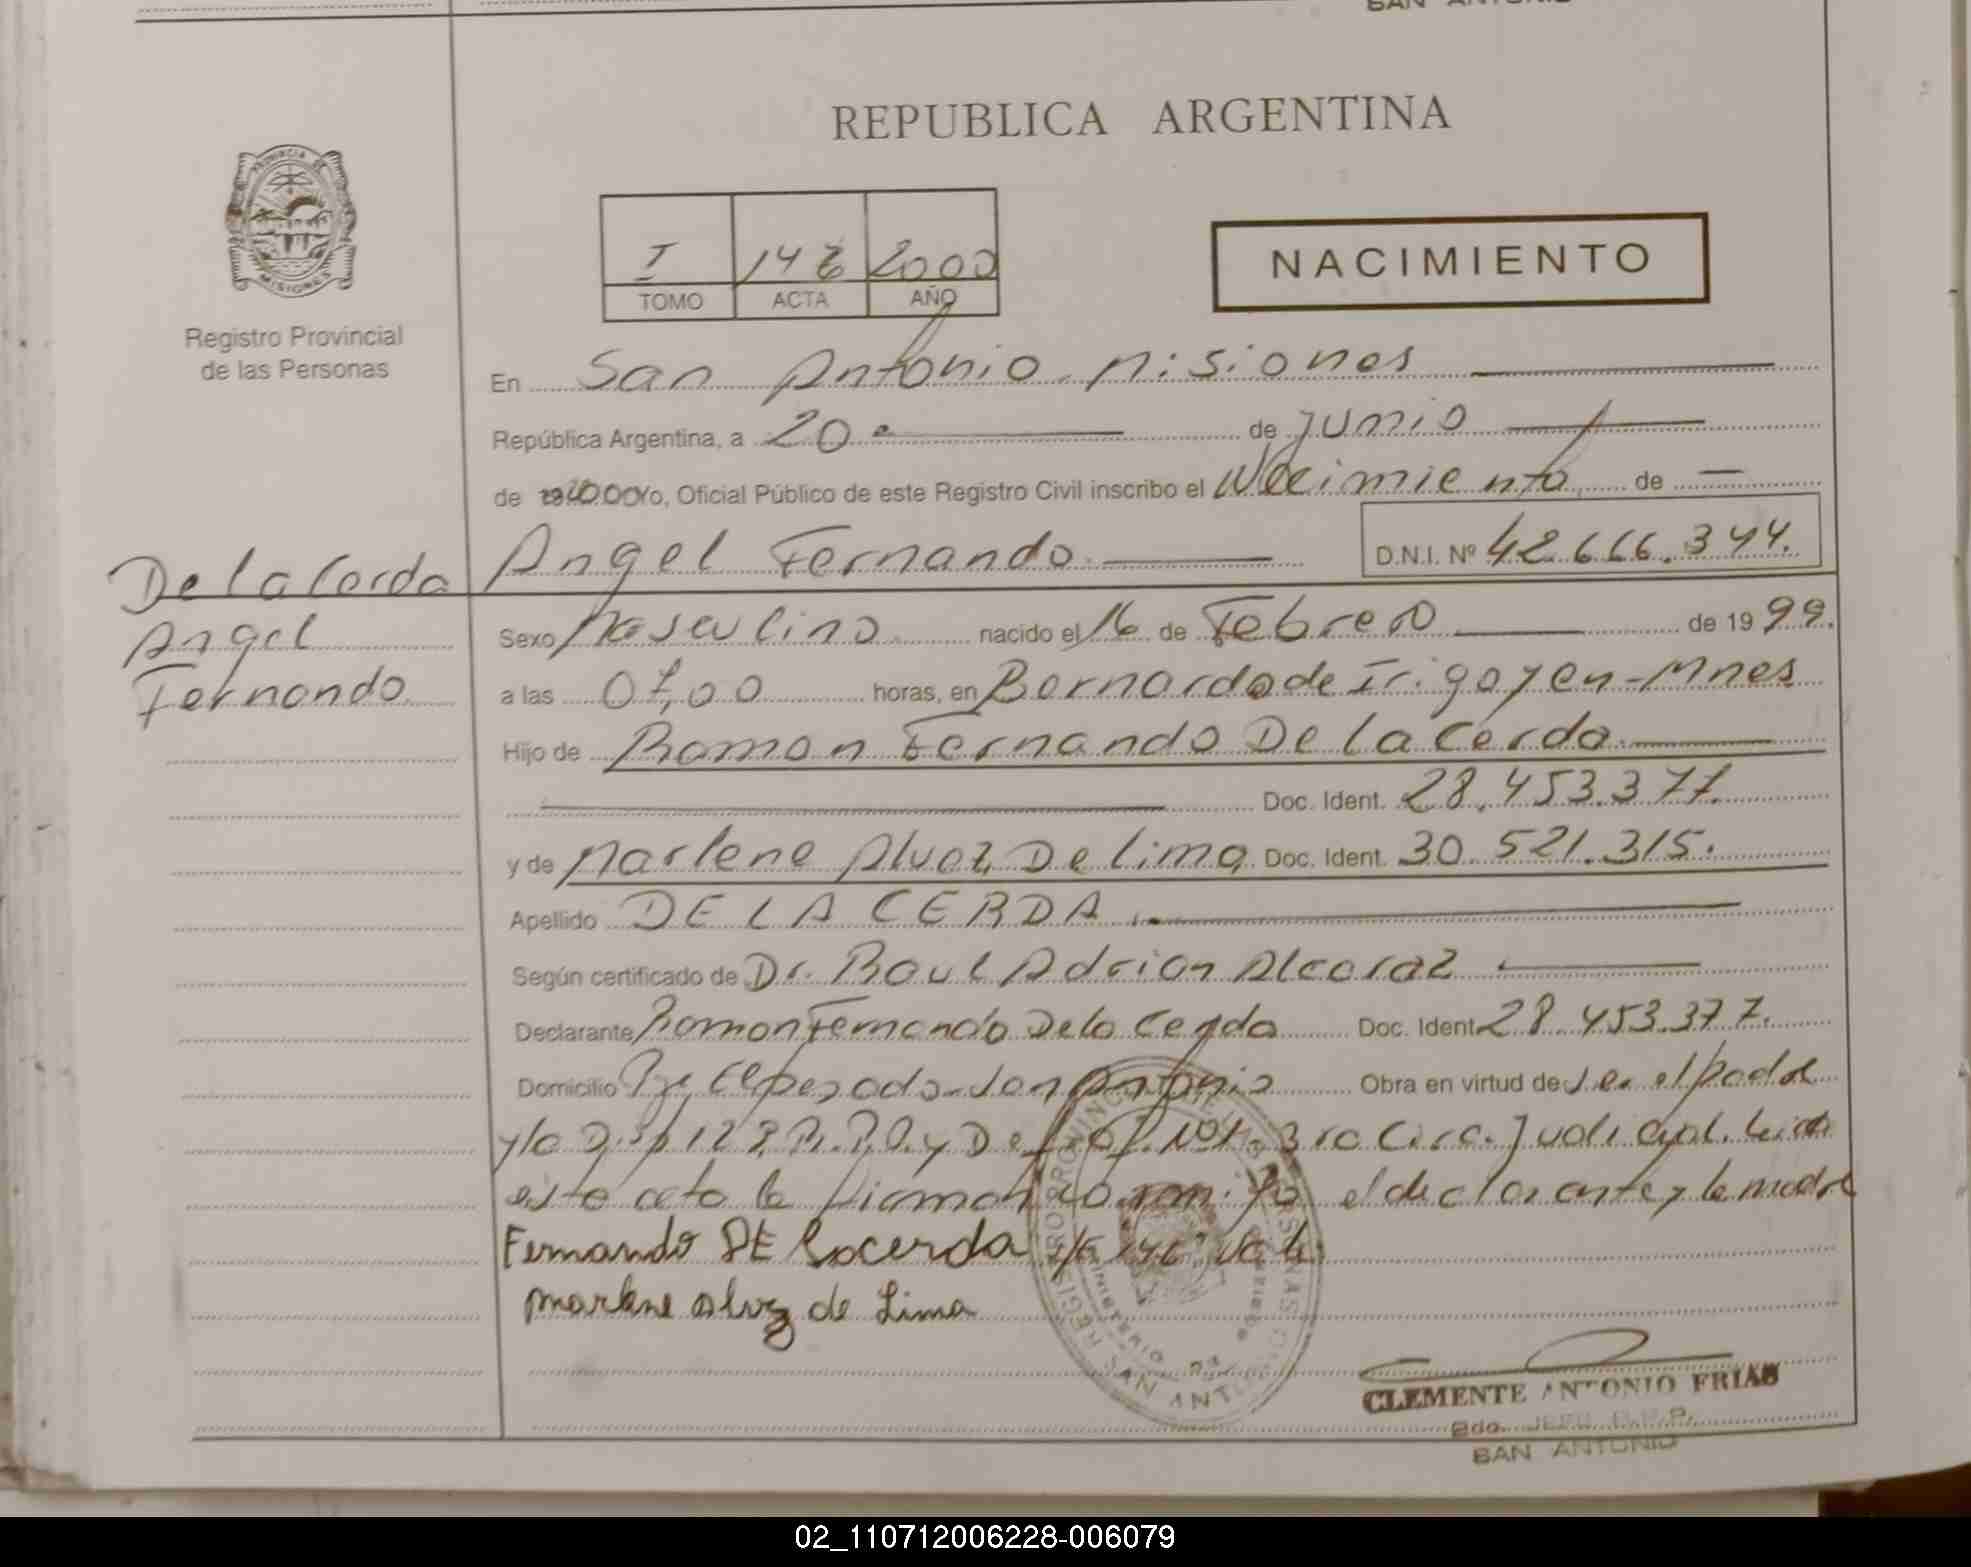 SAN ANTONIO
REPUBLICA ARGENTINA
PROVINCIA DE
MISIONES
Registro Provincial
de las Personas
I 146 2000
TOMO ACTA AÑO
NACIMIENTO
En San Antonio. Misiones
República Argentina, a 20 de junio
de 2000 Yo, Oficial Público de este Registro Civil inscribo el Nacimiento de
De la Cerda
Angel
Fernando
Angel Fernando. D.N.I. Nº 42.666.344.
Sexo Masculino nacido el 16 de Febrero de 1999.
a las 07,00 horas, en Bernardo de Irigoyen-Mnes
Hijo de Ramon Fernando De la Cerda.
Doc. Ident. 28.453.377.
y de Marlene Alvez De lima Doc. Ident. 30.521.315.
Apellido DE LA CERDA.
Según certificado de Dr. Raul Adrian Alcaraz
Declarante Ramon Fernando De la Cerda Doc. Ident. 28.453.377.
Domicilio San Antonio Obra en virtud de ser el padre
y la Disp 123 R.P.P. y Def. Of. Nº1. 3ra Circ. Judicial. Leida
esta acta la firman conmigo el declarante y la madre
Fernando DE lacerda 146 Vale.
marlene alvez de Lima
REGISTRO PROVINCIAL DE LAS PERSONAS
MINISTERIO DE
SAN ANTONIO
CLEMENTE ANTONIO FRIAS
2do. JEFE R.P.P.
SAN ANTONIO
02_110712006228-006079